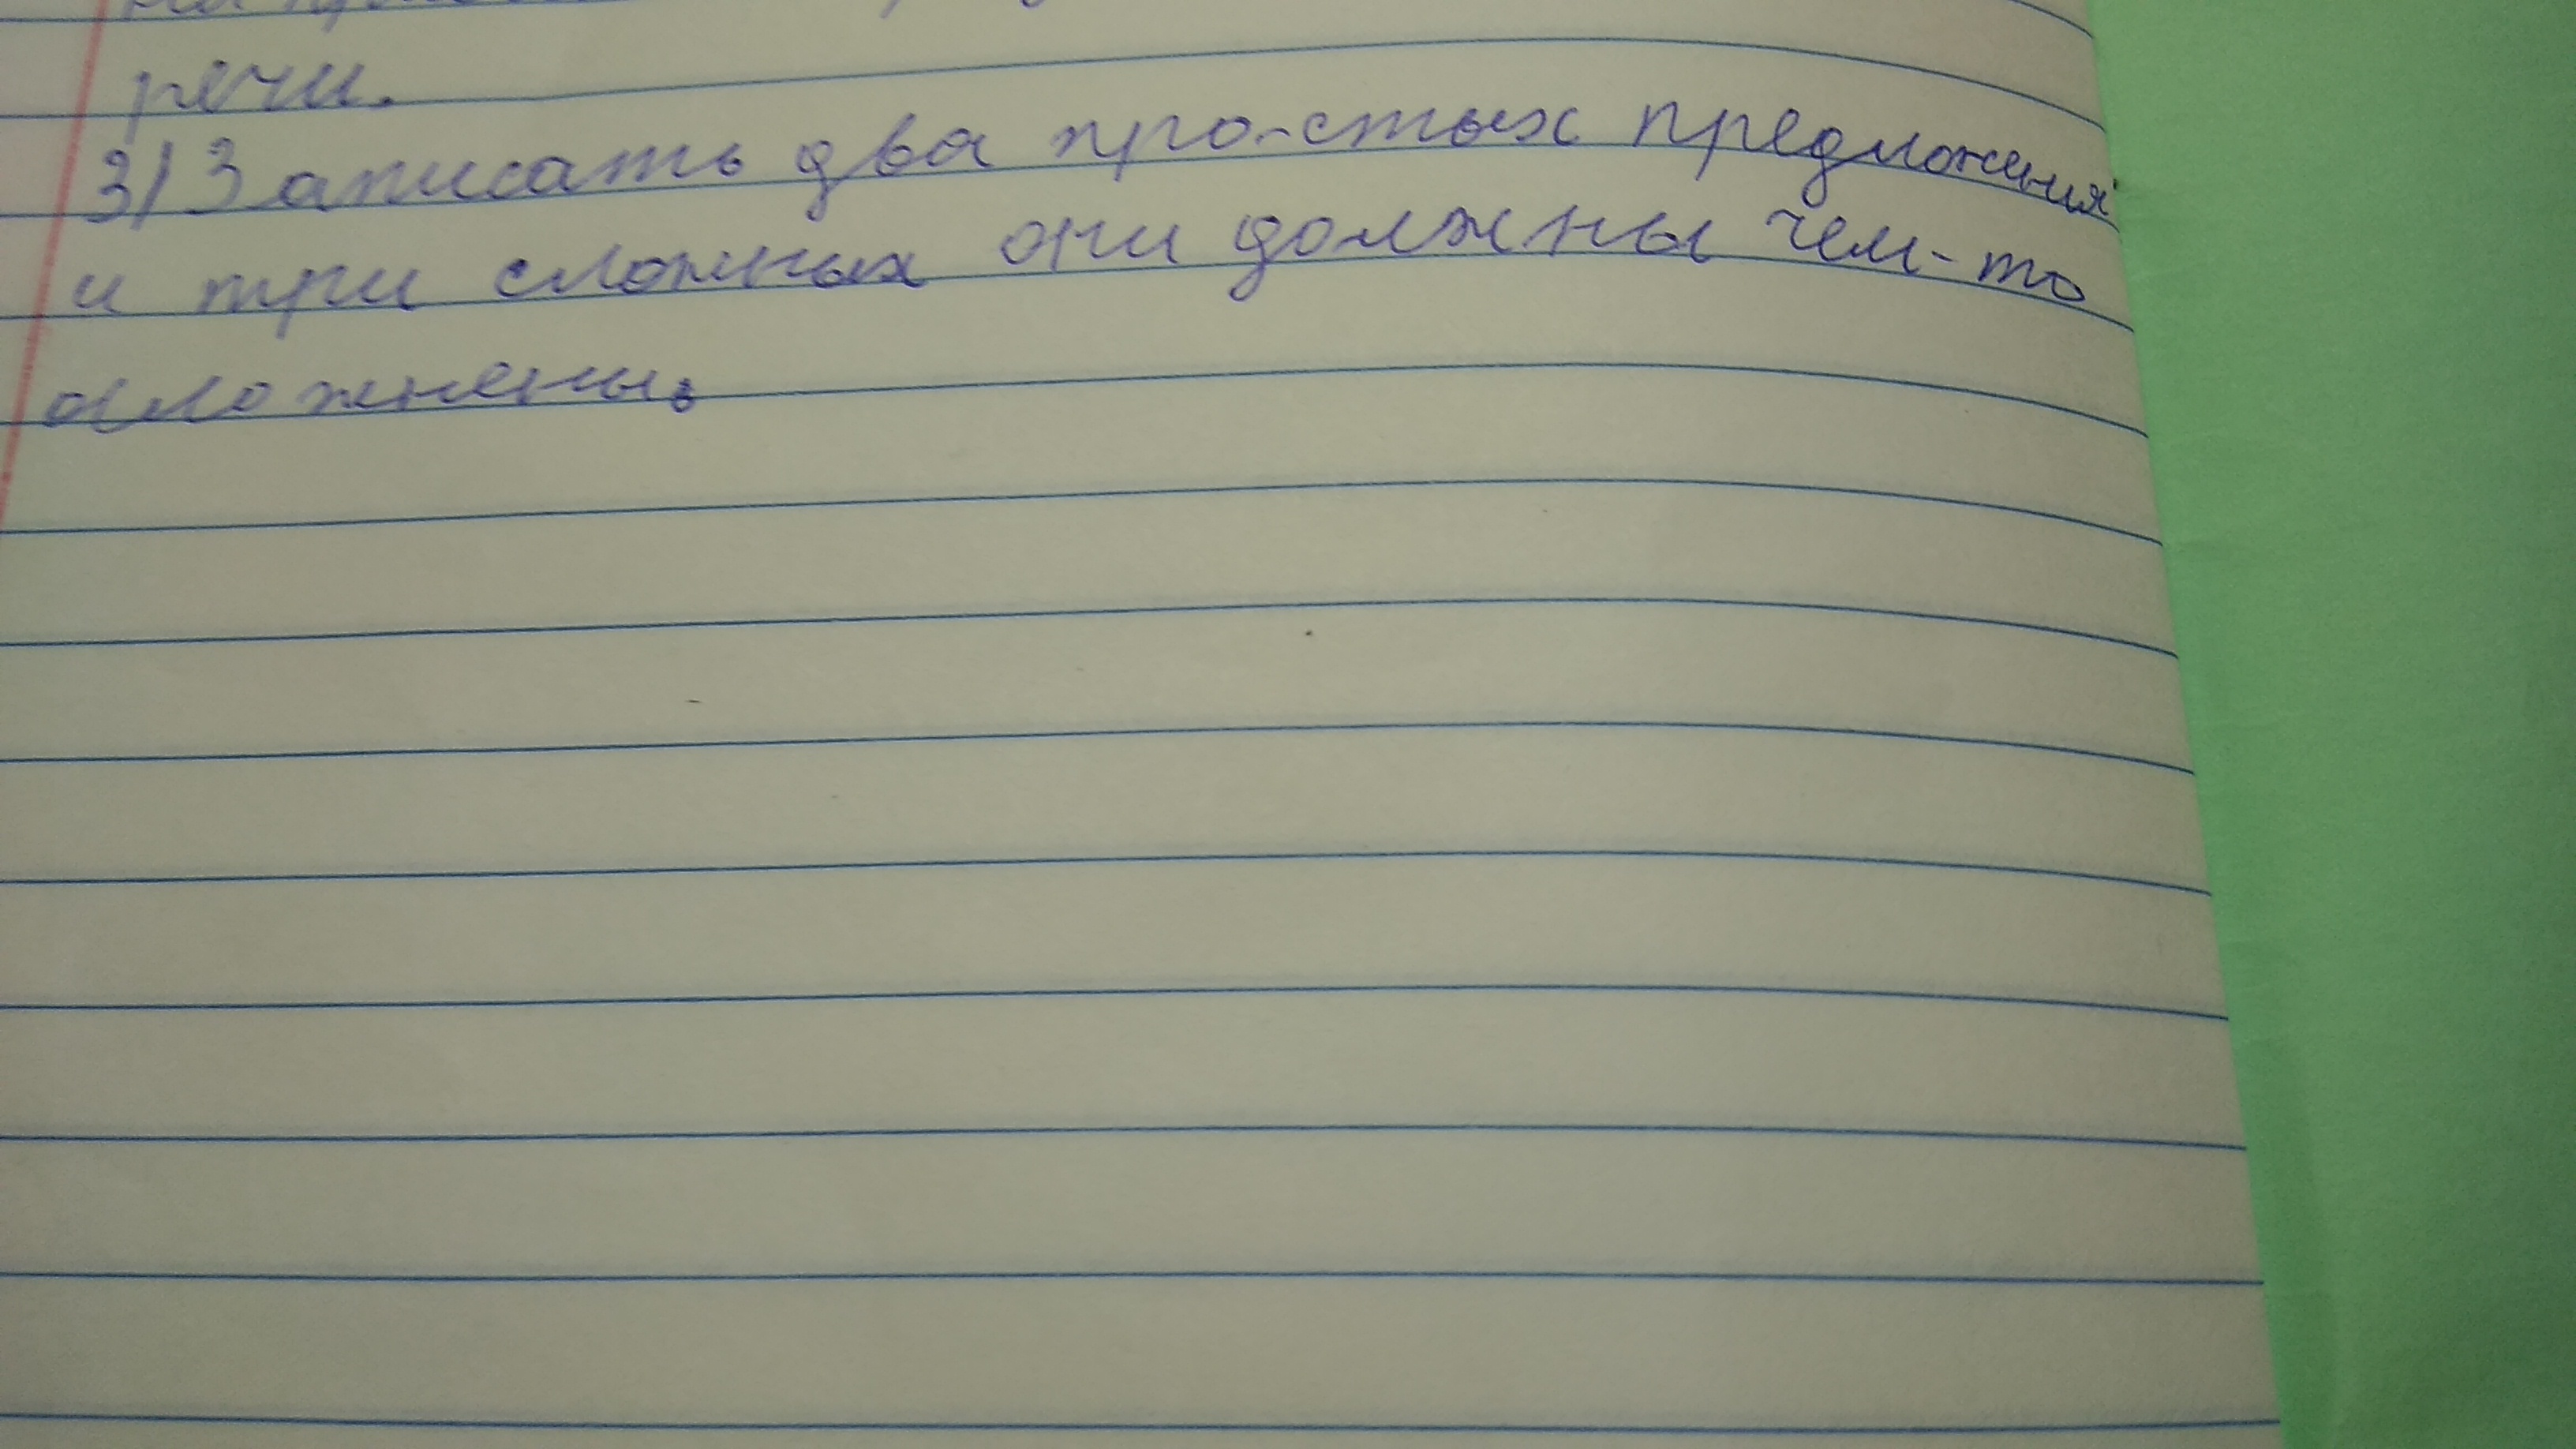 речи.
3) Записать два про-стых предложения
и три сложных они должны чем-то
осложнены.